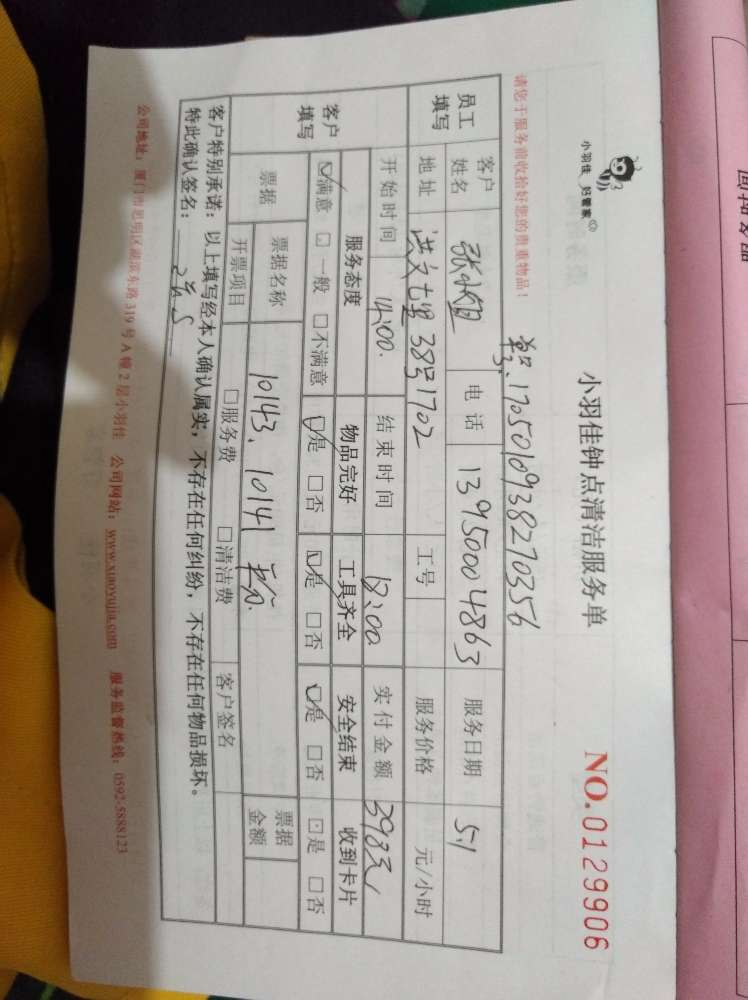 小羽佳 好管家
小羽佳钟点清洁服务单
NO.0129906
请您于服务前收拾好您的贵重物品!
单号:170501093827035 6
员工填写
客户姓名 电话 13950004863 服务日期 5.1
地址 洪文七里38号1702 工号 服务价格 元/小时
客户填写
开始时间 14:00. 结束时间 18:00 实付金额 398元
服务态度 物品完好 工具齐全 安全结束 收到卡片
☑满意 □一般 □不满意 ☑是 □否 ☑是 □否 ☑是 □否 ☑是 □否
票据 票据名称 10143、10141 票据金额
开票项目 □服务费 □清洁费 客户签名
客户特别承诺:以上填写经本人确认属实,不存在任何纠纷,不存在任何物品损坏。
特此确认签名:
公司地址:厦门市思明区湖滨东路319号A幢2层小羽佳 公司网站:www.xiaoyujia.com 服务监督热线:0592-5888123